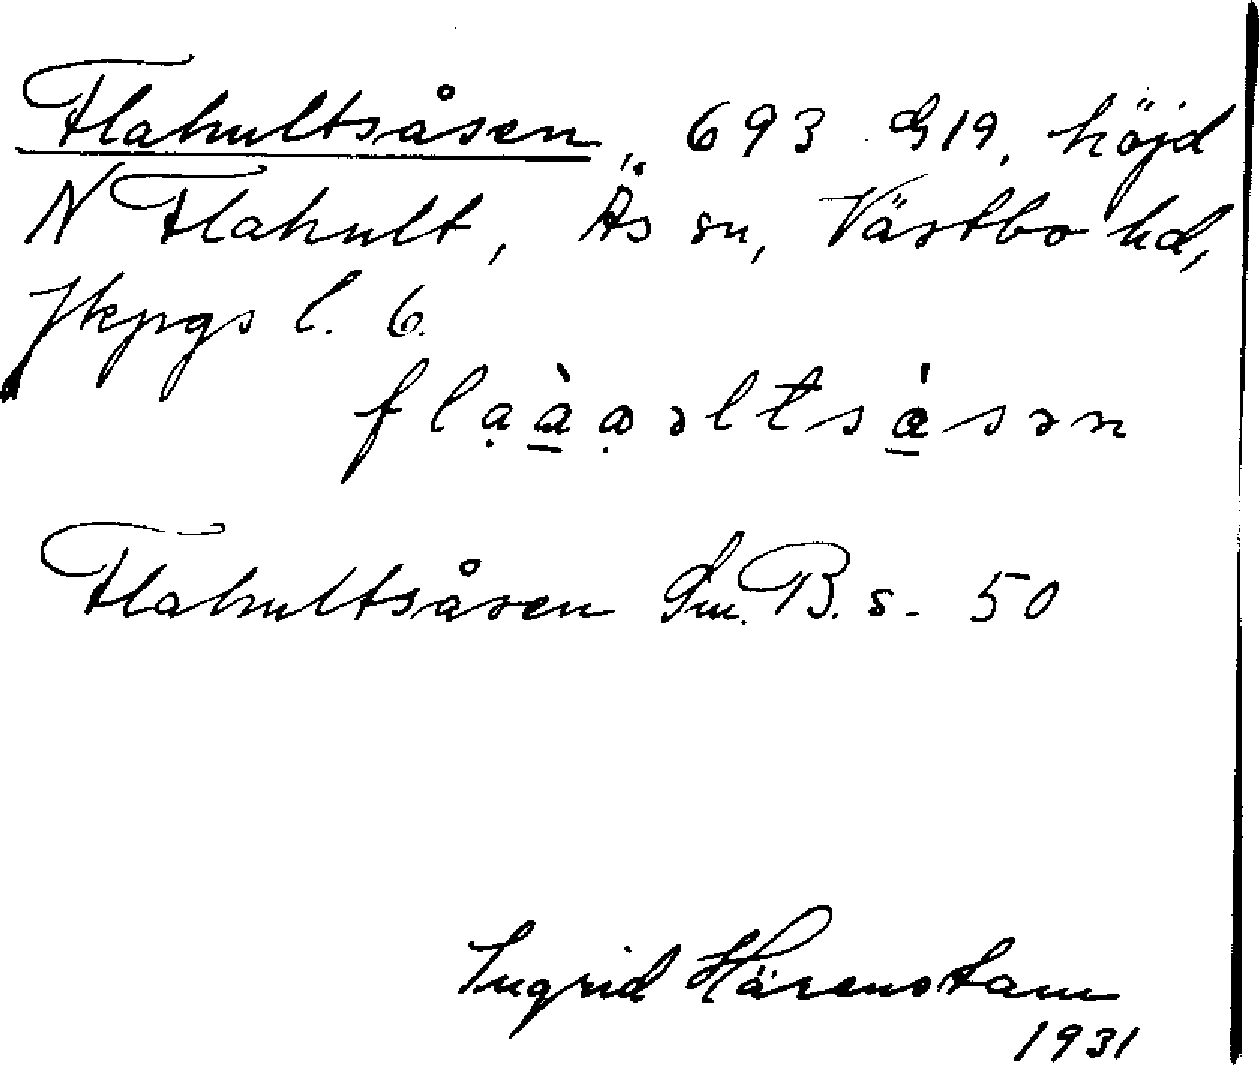 Flahultsåsen, 693 G19, höjd
N Flahult, Ås sn, Västbo hd,
Jkpgs l. 6.
Flahultsåsen Sm. B. s. 50
Ingrid Härenstam
1931